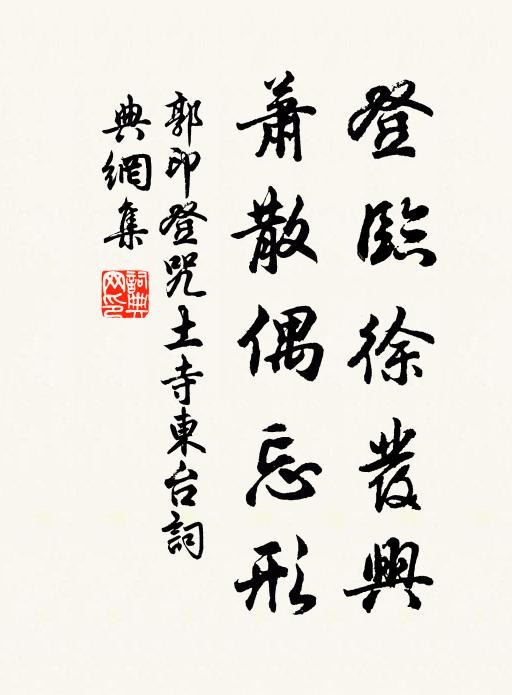 登臨徐發興
蕭散偶忘形
郭印登咒土寺東台詞
典網集
詞典網印